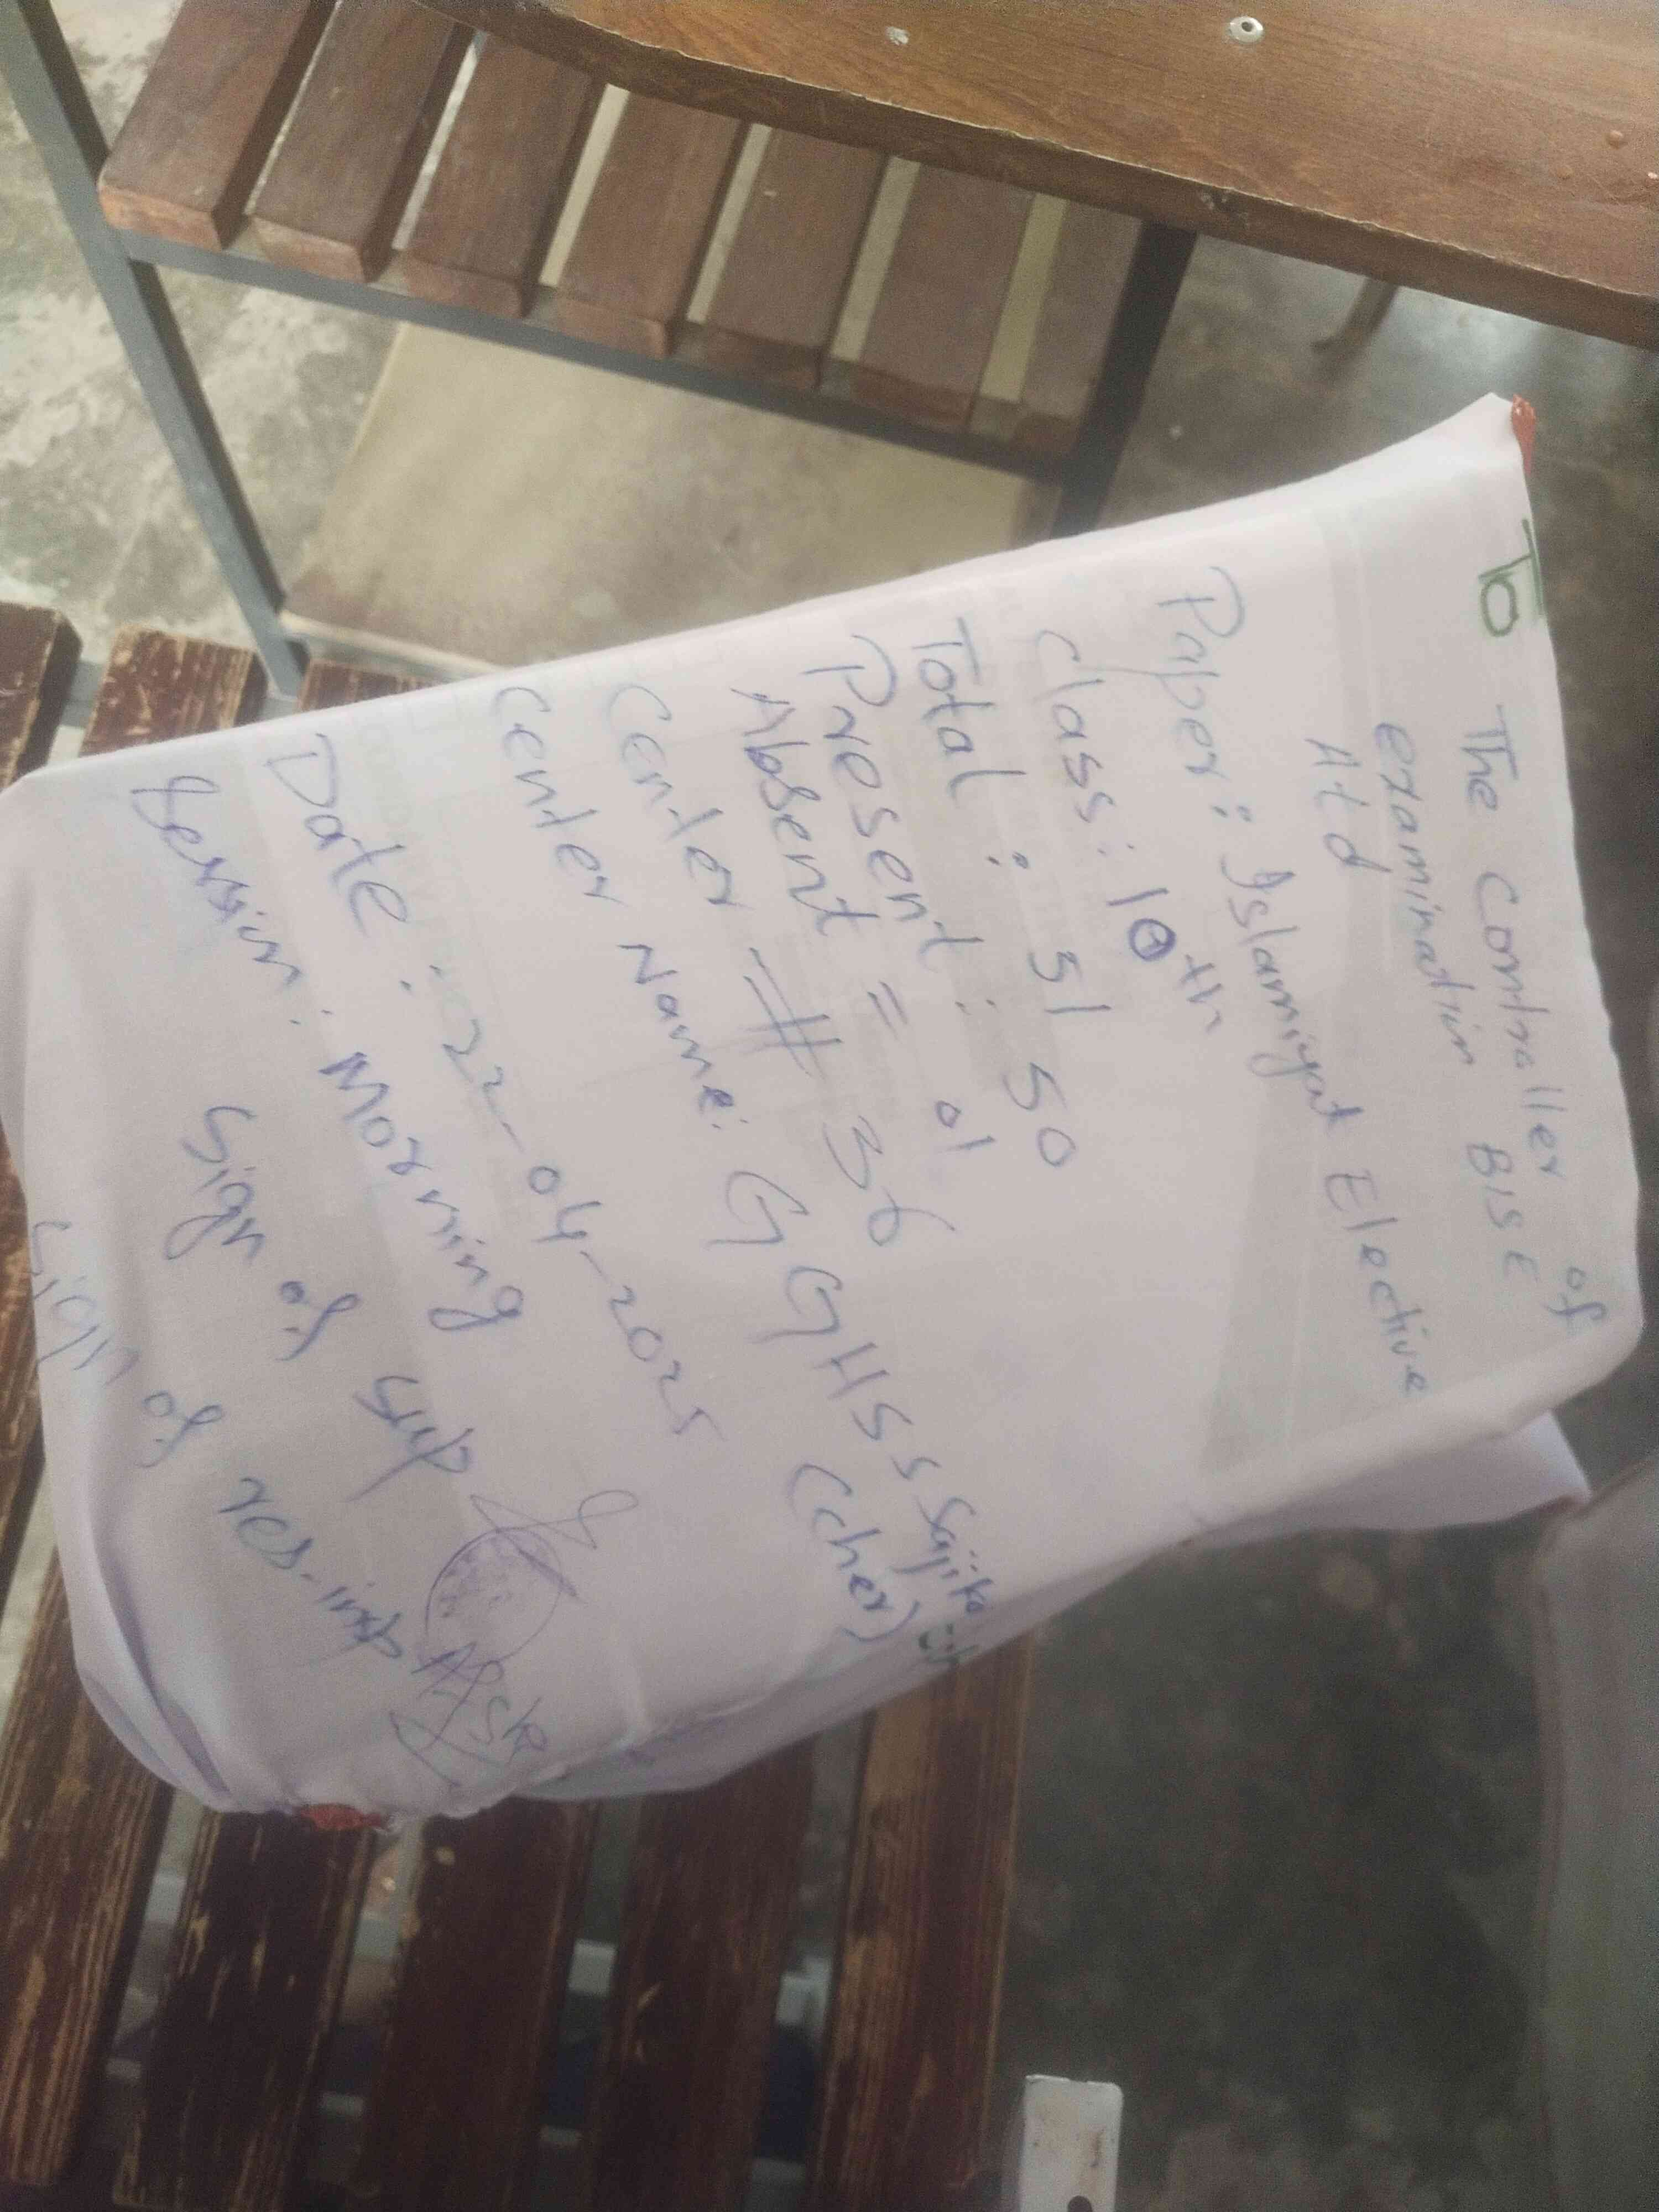 To The Contraller of
examination BISE
Atd
Paper: Islamiyat Elective
Class: 10th
Total : 51
Present : 50
Absent = 01
Center # 36
Center Name: GGHSS Sajiko
(cher)
Date: 22-04-2025
Session: Morning
Sign of sup
Sign of res-insp